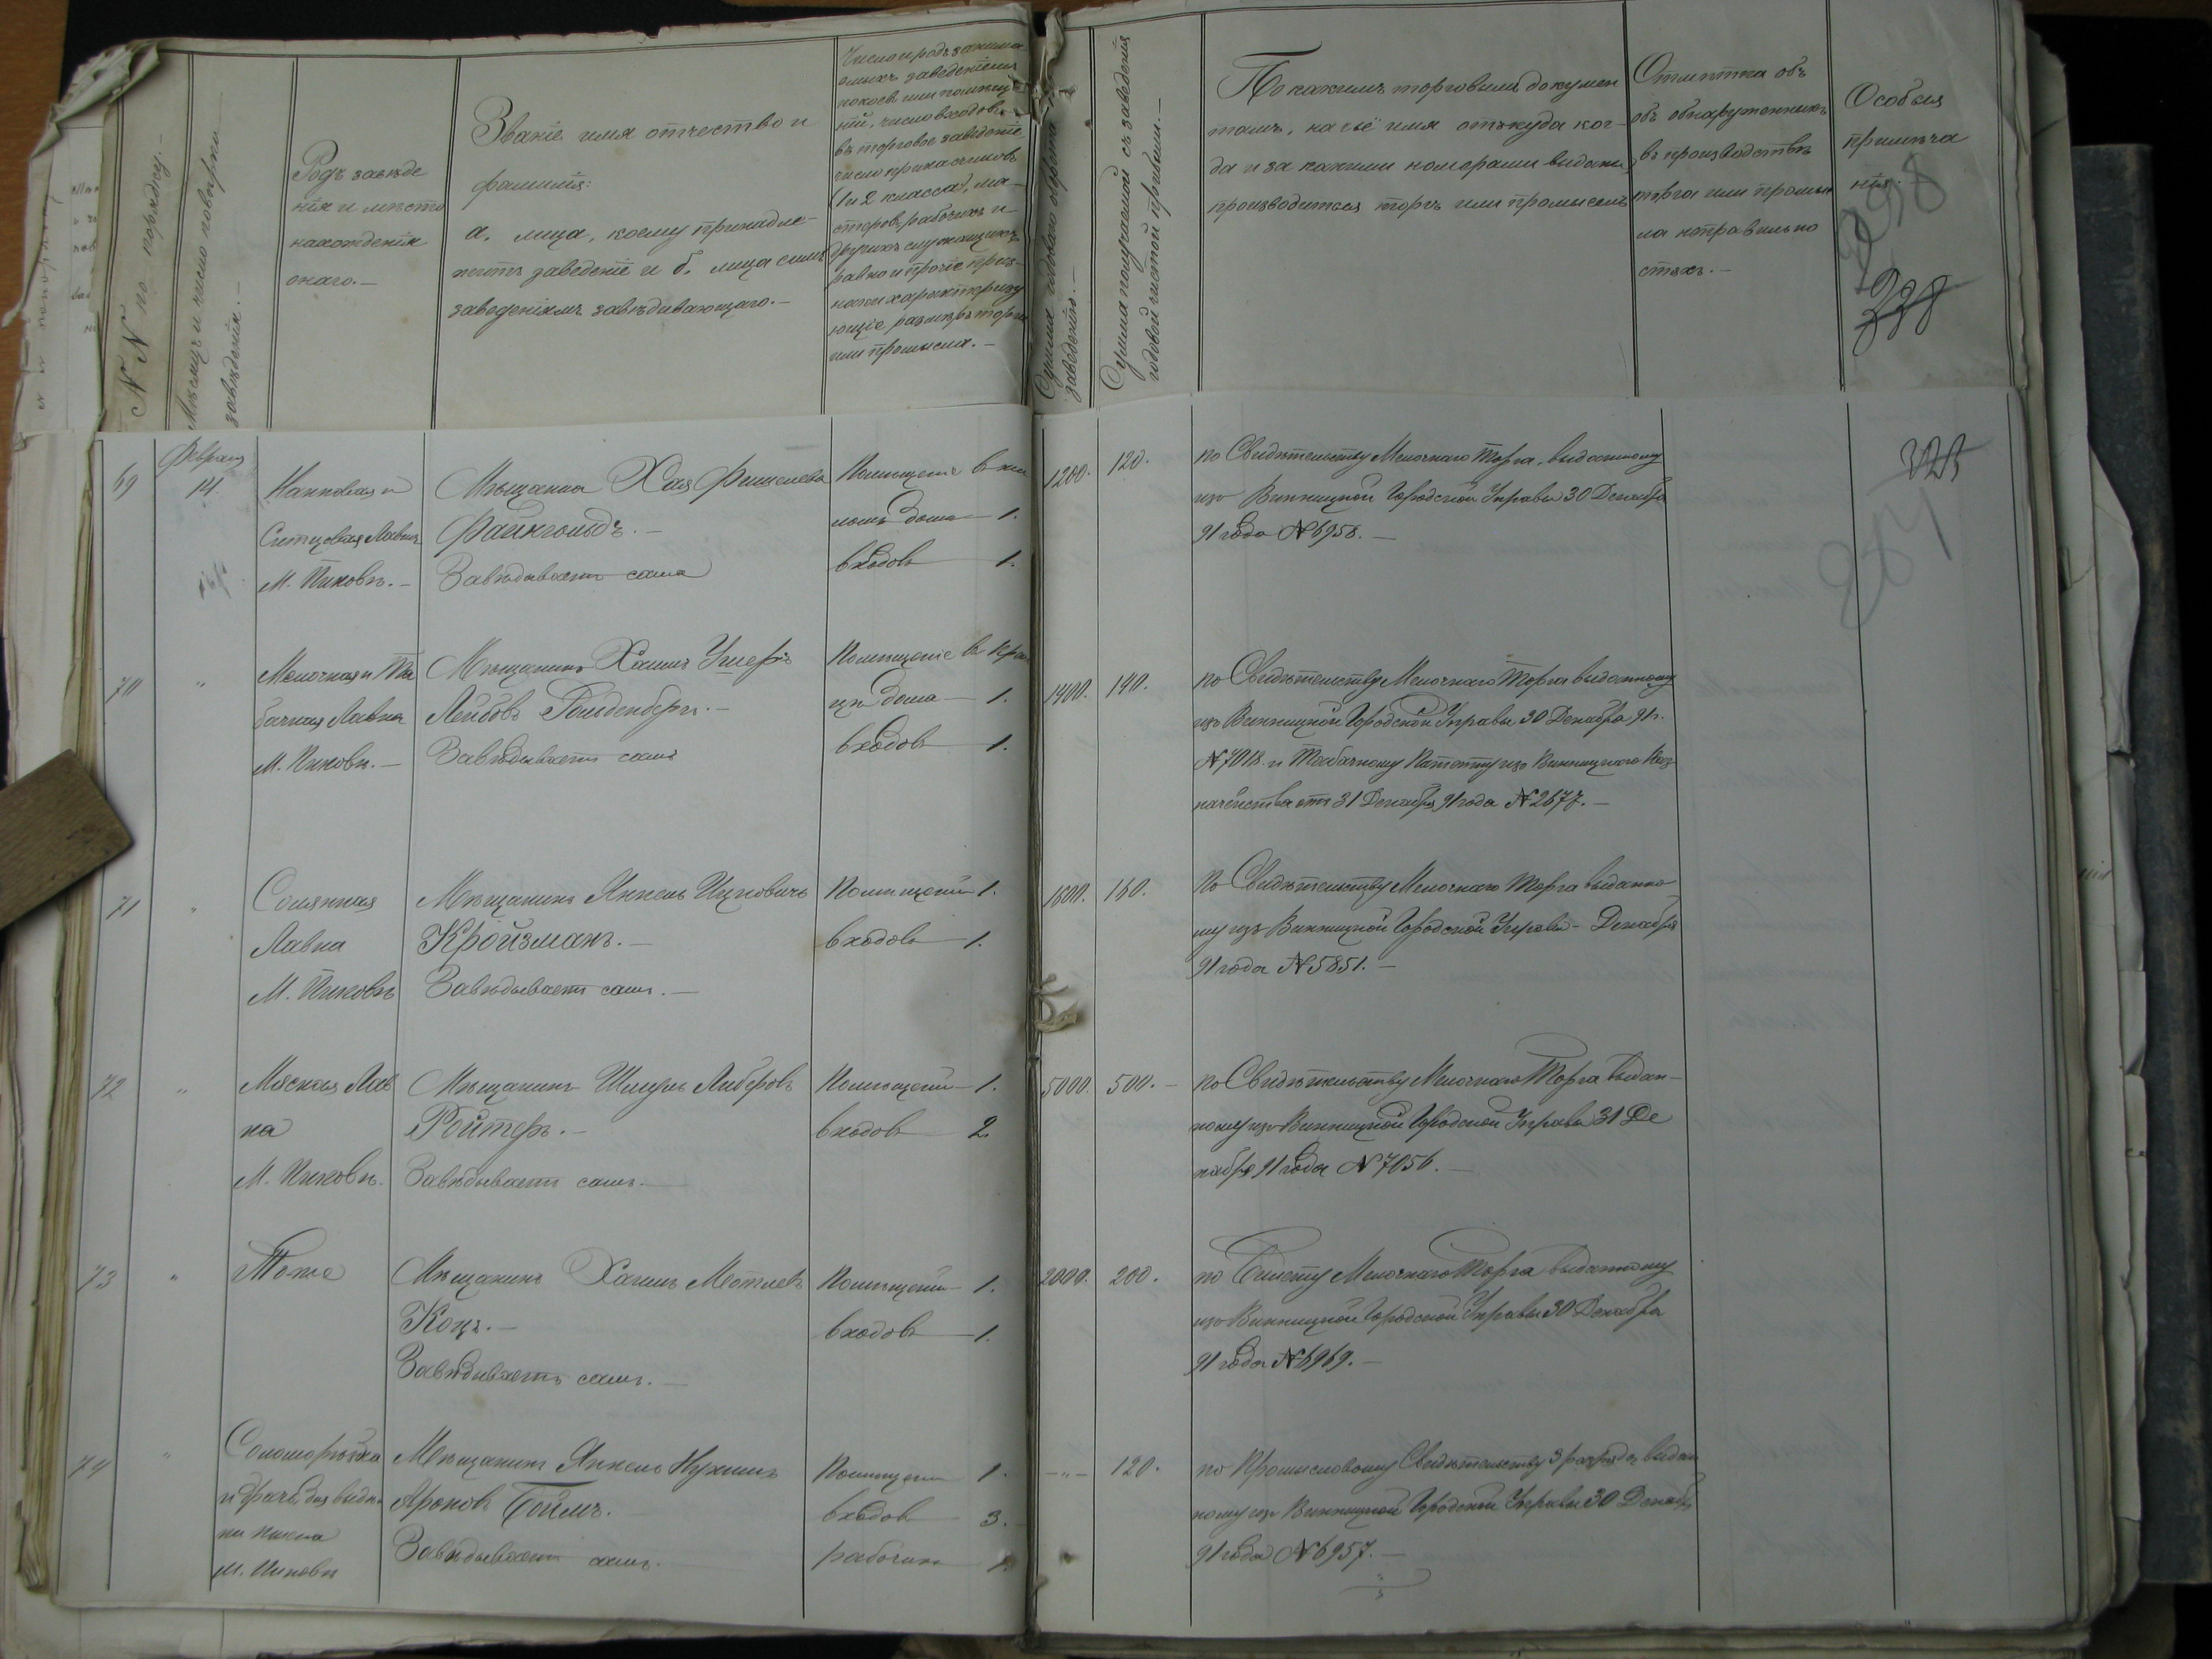 N N по порядку.—
Мѣсяцъ и число повѣрки
завѣденія.—
Родъ завѣде
нія и мѣсто
нахожденія
онаго.—
Званіе имя отчество и
фамилія:
а. лица, коему принадле-
житъ заведеніе и б. лица симъ
заведеніемъ завѣдывающаго.—
Число и родъ занима
емыхъ заведеніемъ
покоевъ или помѣще
ній, число входовъ
въ торговое заведеніе
число прикащиковъ
(1 и 2 класса), ма-
стеровъ, рабочихъ и
другихъ служащихъ
равно и прочіе приз-
наки характеризу
ющіе размѣръ торга
или промысла.—
Сумма годоваго оборота по
заведенію.—
Сумма получаемой съ заведенія
годовой чистой прибыли.—
По какимъ торговымъ докумен
тамъ, на чьё имя откуда ког-
да и за какими номерами выданы,
производится торгъ или промыселъ
Отмѣтка объ
объ обнаруженныхъ
въ производствѣ
торга или промыс
ла неправильно
стяхъ.—
Особыя
примѣча
нія.—
298
328
69
Февраля
14.
Нанковая и
Ситцевая Лавка
М. Пиковъ.—
Мѣщанка Хая Фишелева
Файнгольдъ.—
Завѣдываетъ сама
Помѣщеніе въ жи
ломъ домѣ 1.
входовъ 1.
1200.
120.
по Свидѣтельству Мелочнаго Торга, выданному
изъ Винницкой Городской Управы 30 Декабря
91 года N 6958.—
325
70
"
Мелочная и Та
бачная Лавка
М. Пиковъ.—
Мѣщанинъ Хаимъ Ушеръ
Лейбовъ Гольденбергъ.—
Завѣдываетъ самъ
Помѣщеніе въ Кры
цѣ дома 1.
входовъ 1.
1400.
140.
по Свидѣтельству Мелочнаго Торга выданному
изъ Винницкой Городской Управы 30 Декабря 91 г.
N 7018. и Табачному Патенту изъ Винницкаго Каз-
начейства отъ 31 Декабря 91 года N 2677.—
71
"
Солянная
Лавка
М. Пиковъ
Мѣщанинъ Янкель Ицковичъ
Кройзманъ.—
Завѣдываетъ самъ.—
Помѣщеній 1.
входовъ 1.
1600.
160.
По Свидѣтельству Мелочнаго Торга выданно
му изъ Винницкой Городской Управы - Декабря
91 года N 5851.—
72
"
Мясная Лав
ка
М. Пиковъ.
Мѣщанинъ Шмуль Либеровъ
Ройтеръ.—
Завѣдываетъ самъ.—
Помѣщеній 1.
входовъ 2.
5000.
500.—
по Свидѣтельству Мелочнаго Торга выдан-
ному изъ Винницкой Городской Управы 31 Де
кабря 91 года N 7056.—
73
"
Тоже
Мѣщанинъ Хаимъ Мотлевъ
Коцъ.—
Завѣдываетъ самъ.—
Помѣщеній 1.
входовъ 1.
2000.
200.
по Билету Мелочнаго Торга выданному
изъ Винницкой Городской Управы 30 Декабря
91 года N 6969.—
74
"
М. Пиковъ
Мѣщанинъ Янкель Нухимъ
Ароновъ Боймъ.
Завѣдываетъ самъ.
Помѣщеній 1.
входовъ 3.
рабочихъ 1.
— " —
120.
по Промысловому Свидѣтельству 3 разряда, выдан
ному изъ Винницкой Городской Управы 30 Декабря
91 года N 6957.—